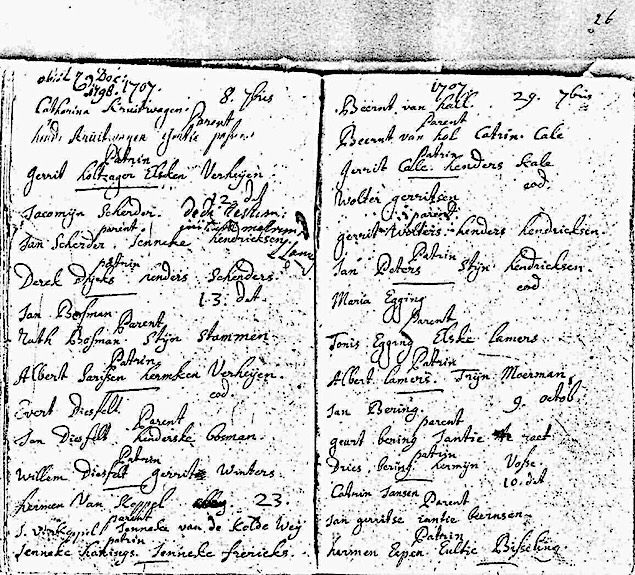 26
obiit 7 Dec:
1798. 1707.
Catharina Kruitwagen. 8. 7bris
Parent
Kruitwagen
Patrin
Gerrit holtzager Elsken Verheijen.
12. dt
Jacomijn Scherder.
parent
Jan Scherder. Jenneke hendricksen
patrin
Derck Dijcks henders Schenders
13. dit.
Jan Bosman
Parent
Nath Bosman. Stijn Stammen
Patrin
Albert Jarissen hermken Verheijen.
eod.
Evert Diesfelt
Parent
Jan Diesfelt henderske boman.
Patrin
Willem Diesfelt gerritie Winters
hermen Van Keppel 23.
parent
Jenneke van de Kolde Weij
patrin
Jenneke hanings. Jenneke frericks.
1707
Beernt van hall. 29. 7bris
Parent
Beernt van hol Catrin. Cale
Patrin
Gerrit Cale. henders Kale
eod.
Wolter gerritsen
parent
gerrit Wolters. henders hendricksen
Patrin
Jan Peters Stijn hendricksen
eod
Maria Egging
Parent
Tonis Egging Elske Lamers.
Patrin
Albert Lamers. Trijn Moerman
Jan Bering. 9. octob.
parent
geurt bering Jantie raet
patrin
Dries bering. hermijn Vosse
Catrin Jansen 10. dit
Parent
Jan gerritse Jantie beernsen
Patrin
hermen Espen Eultie Bisseling.